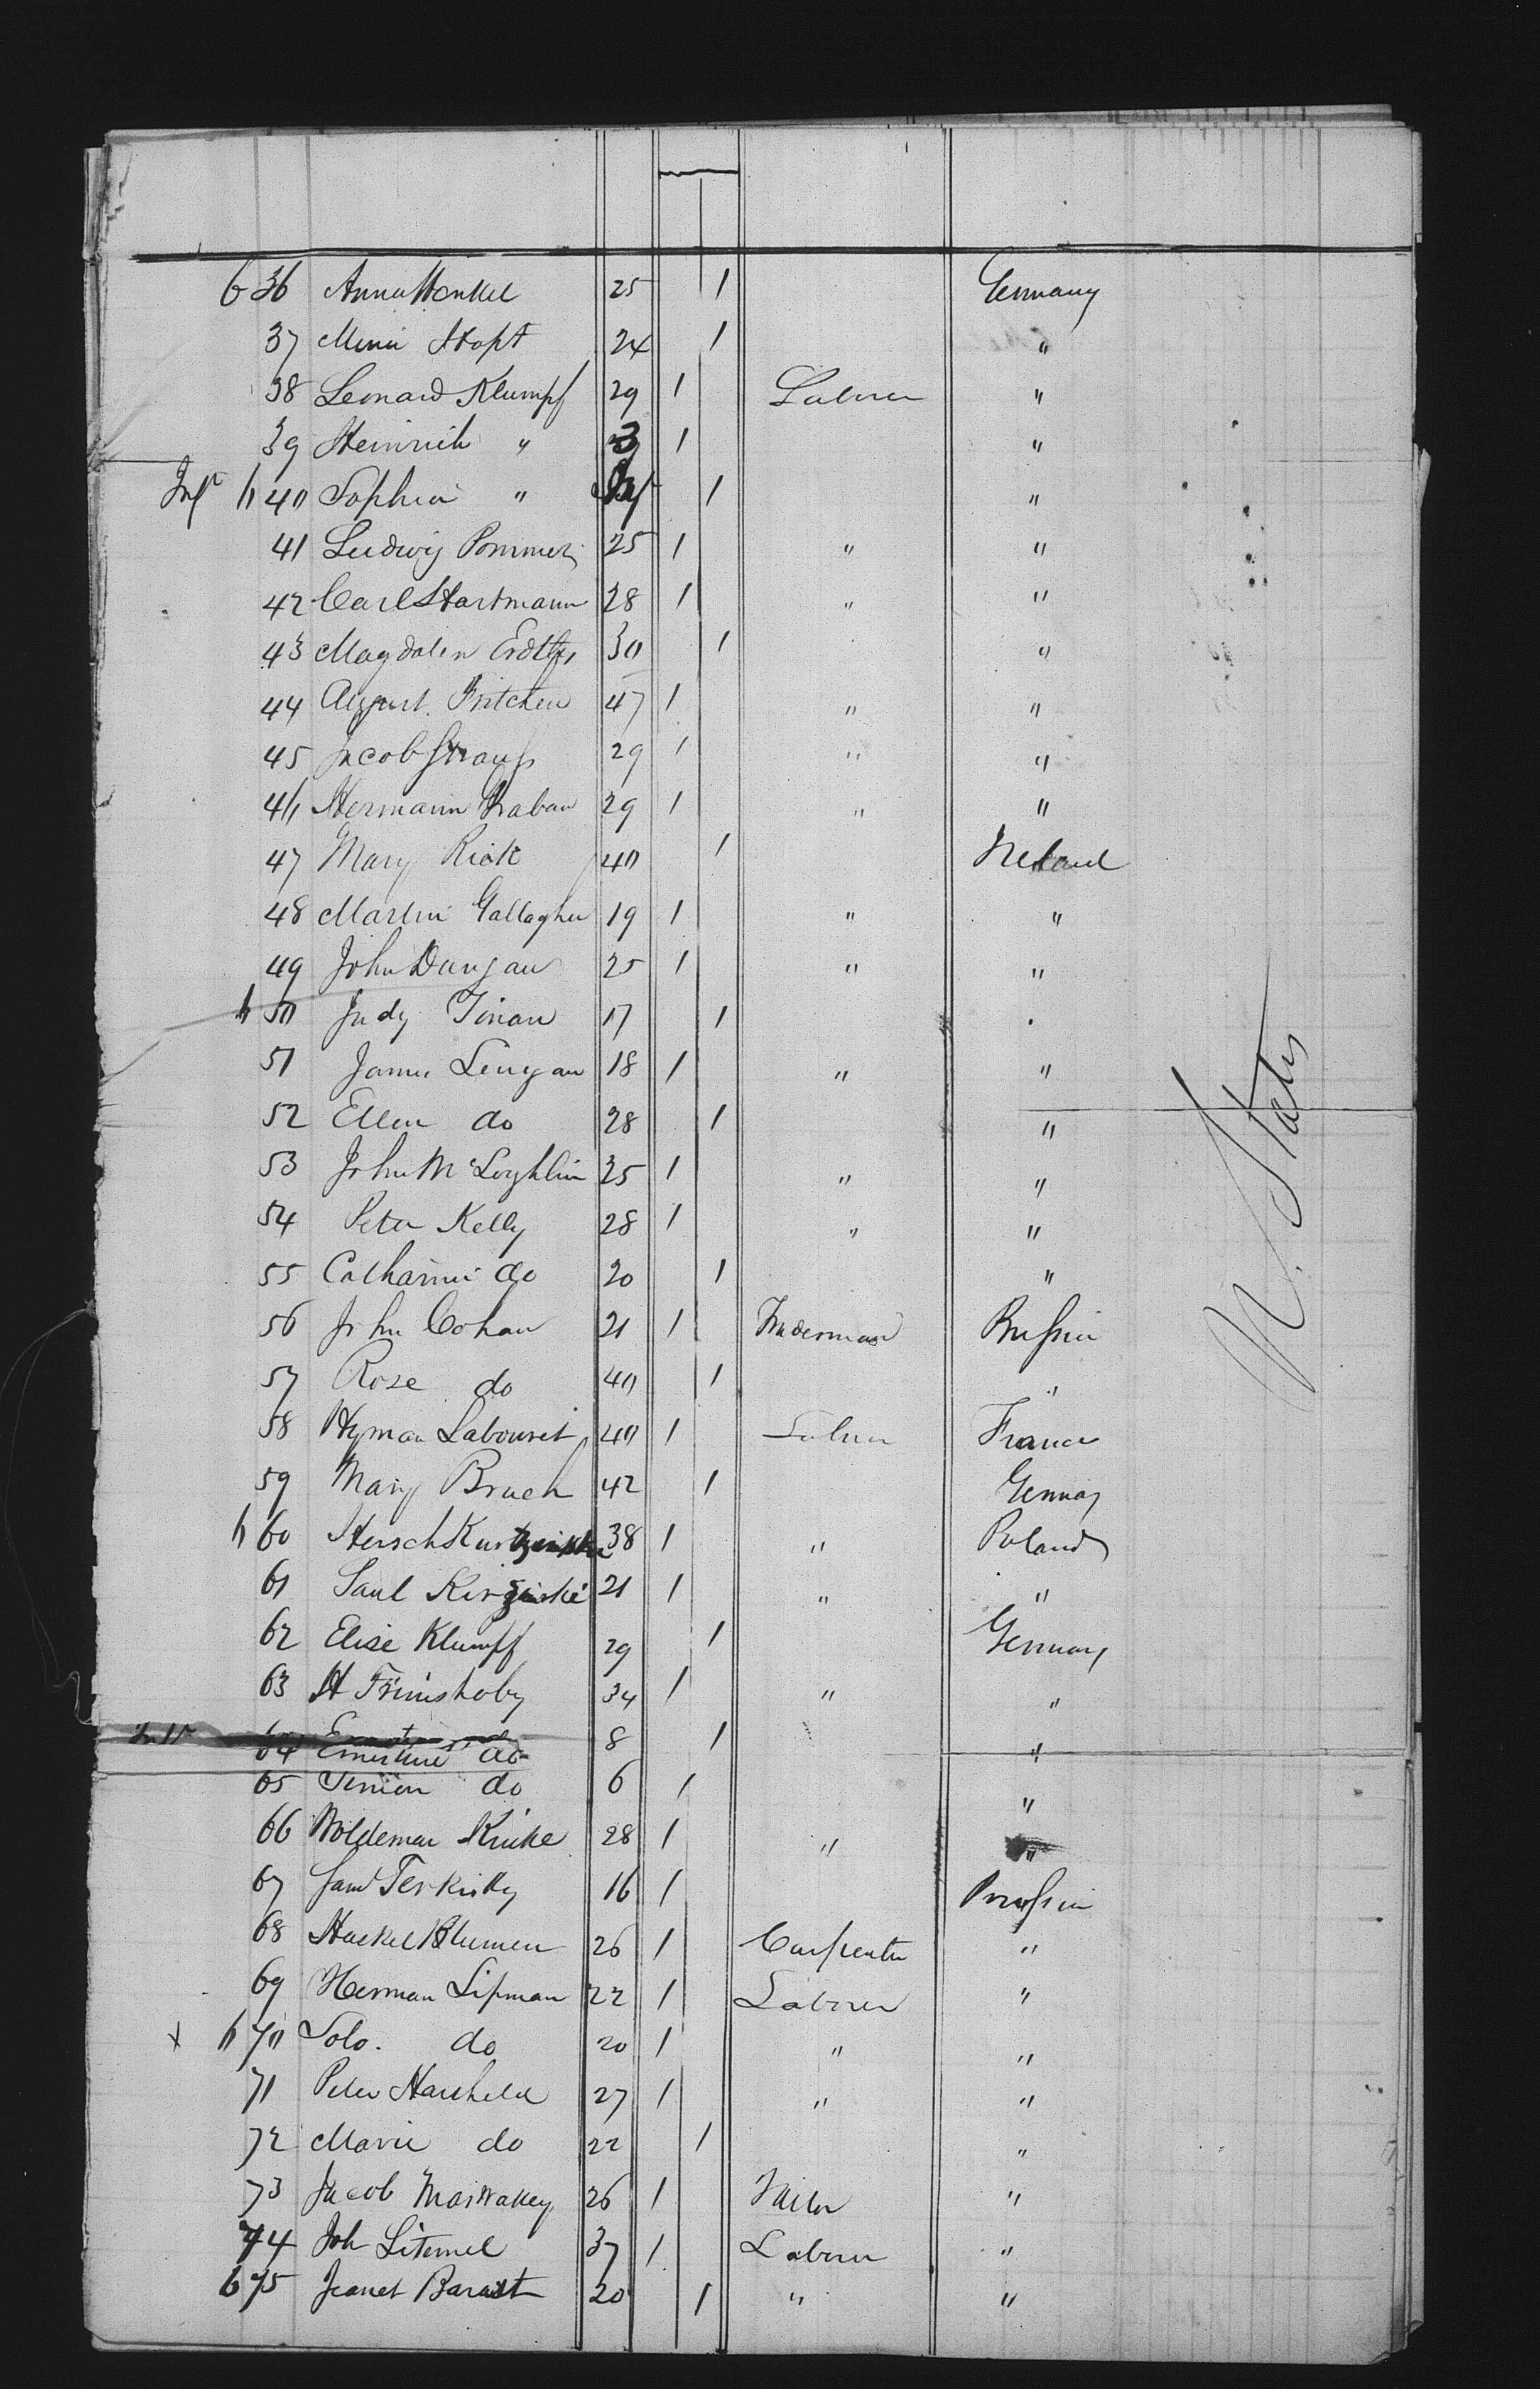 636 Anna Henkel 25 1 Germany
37 Minni Hopt 24 1 "
38 Leonard Klumpf 29 1 Laborer "
39 Heinrich " 3 1 "
Inft 640 Sophia " Inf 1 "
41 Ludwig Pommer 25 1 " "
42 Carl Hartmann 28 1 " "
43 Magdalen 30 1 "
44 August Fritchen 47 1 " "
45 Jacob Strauss 29 1 " "
46 Hermann Kraban 29 1 " "
47 Mary Riok 40 1 Ireland
48 Martin Gallagher 19 1 " "
49 John Dungan 25 1 " "
650 Judy Tinan 17 1 "
51 James Lingan 18 1 " "
52 Ellen do 28 1 "
53 John McLoghlin 35 1 " "
54 Peter Kelly 28 1 " "
55 Catharine do 20 1 "
56 John Cohan 21 1 Traderman Prussia
57 Rose do 40 1 "
58 Hyman Labouret 40 1 Laborer France
59 Mary Bruch 42 1 Germany
660 Hersch 38 1 " Poland
61 Saul Kirzinski 21 1 " "
62 Elise Klumpff 29 1 Germany
63 H Frimshoby 34 1 " "
64 Ernestine do 8 1 "
65 Simon do 6 1 "
66 Woldemar Kinke 28 1 " "
67 Saml Terkisky 16 1 Prussia
68 Haskel Blumen 26 1 Carpenter "
69 Herman Lipman 22 1 Laborer "
x 670 Solo. do 20 1 " "
71 Peter Harsheld 27 1 " "
72 Marie do 22 1 "
73 Jacob Marwakey 26 1 Tailor "
74 Joh Litemel 37 1 Laborer "
675 Jeanet Barast 20 1 " "
U. States